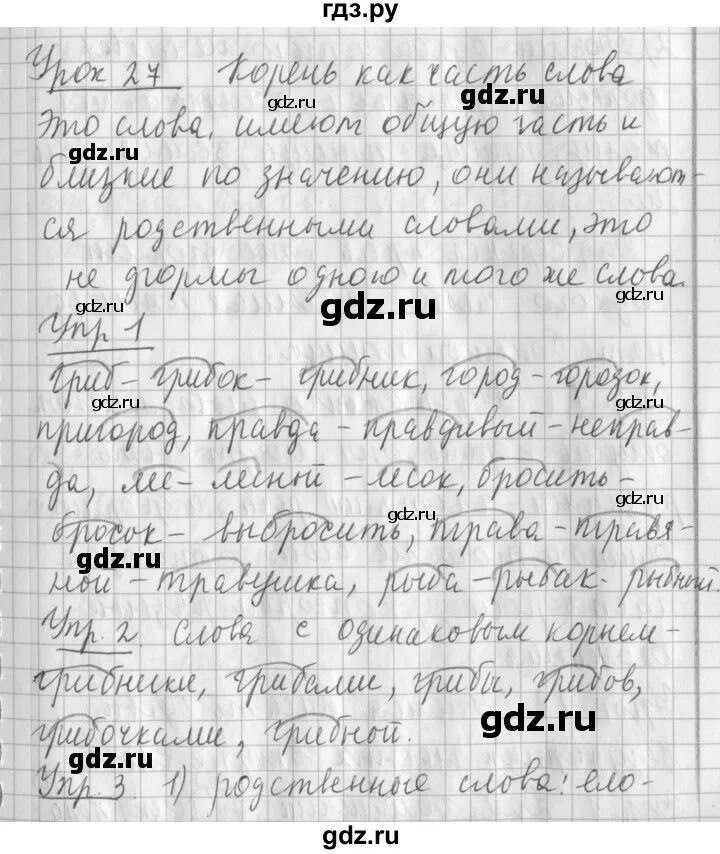 гдз.ру
Урок 27 Корень как часть слова
gdz.ru
Это слова, имеют общую часть и
gdz.ru
gdz.ru
близкие по значению, они называют-
gdz.ru
ся родственными словами, это
не формы одного и того же слова.
gdz.ru gdz.ru gdz.ru
Упр 1
гриб – грибок – грибник, город – городок,
gdz.ru gdz.ru
пригород, правда – правдивый – неправ-
да, лес – лесной – лесок, бросить –
gdz.ru
бросок – выбросить, трава – травя-
gdz.ru gdz.ru
ной – травушка, рыба – рыбак – рыбный.
gdz.ru
Упр. 2. Слова с одинаковым корнем –
gdz.ru
грибники, грибами, грибы, грибов,
gdz.ru
грибочками, грибной.
gdz.ru
Упр. 3. 1) родственные слова: ело-
gdz.ru
gdz.ru